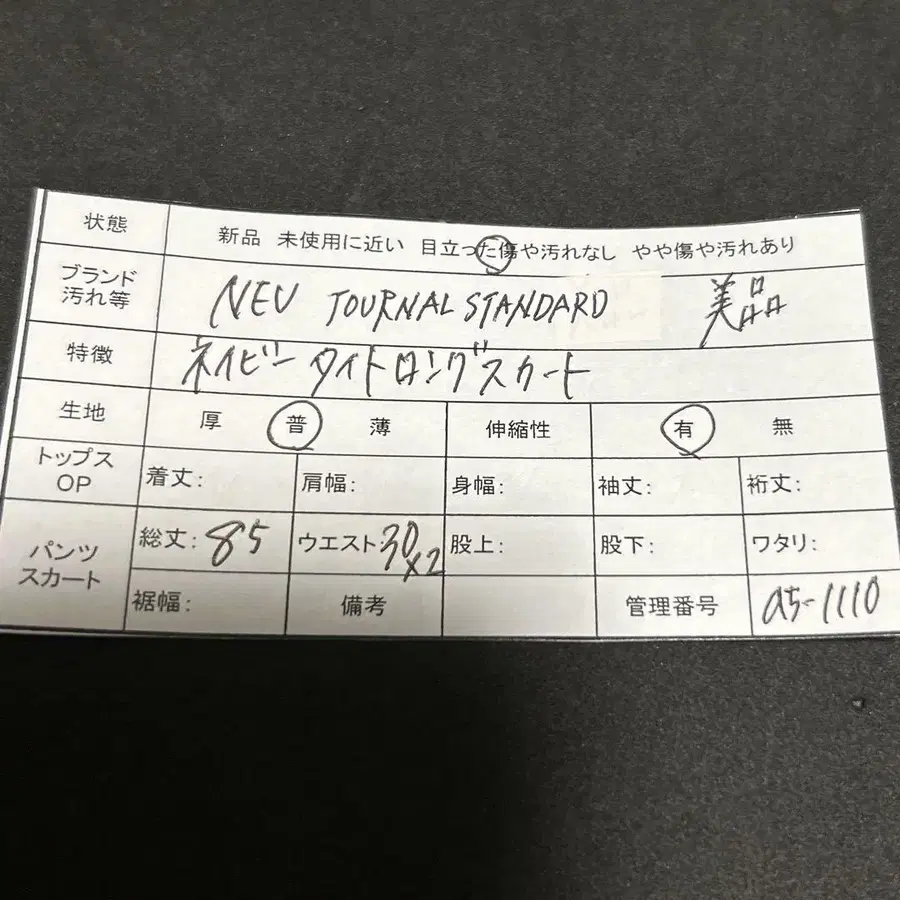 状態 新品 未使用に近い 目立った傷や汚れなし やや傷や汚れあり
ブランド
汚れ等 NEU JOURNAL STANDARD 美品
特徴 ネイビー タイトロングスカート
生地 厚 普 薄 伸縮性 有 無
トップス
OP 着丈: 肩幅: 身幅: 袖丈: 裄丈:
パンツ
スカート 総丈: 85 ウエスト: 30×2 股上: 股下: ワタリ:
裾幅: 備考 管理番号 a5-1110